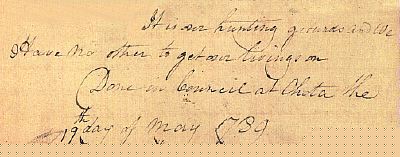 It is our hunting grounds and We
Have no other to get our livings on
Done in Council at Chota the
19th day of May 1789